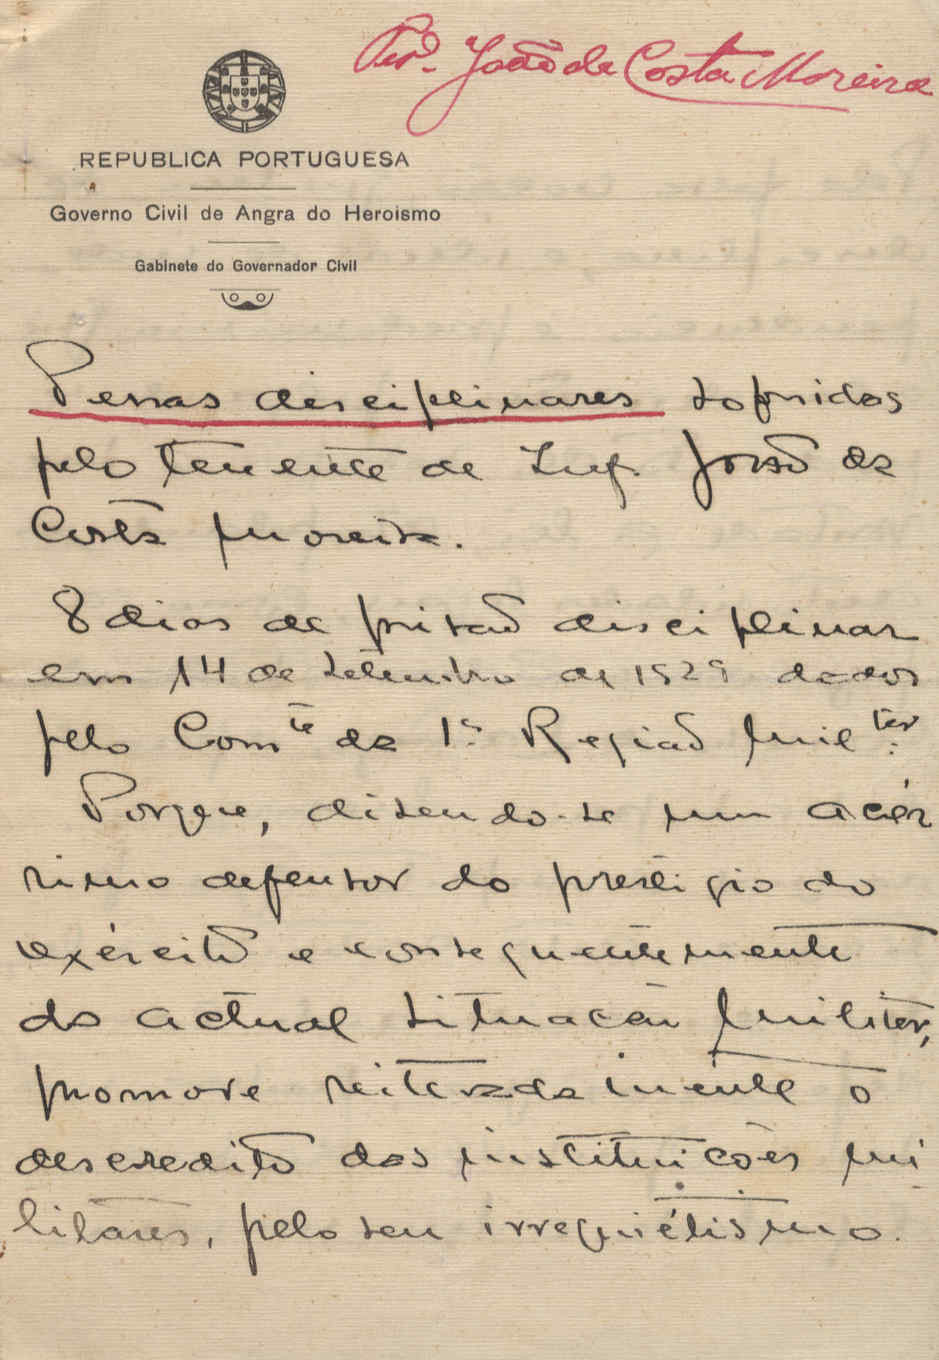 João da Costa Moreira
REPUBLICA PORTUGUESA
Governo Civil de Angra do Heroismo
Gabinete do Governador Civil
Penas disciplinares sofridas
pelo tenente de Inf. João da
Costa Moreira.
8 dias de prisão disciplinar
em 14 de Setembro de 1929 dados
pelo Comte da 1ª Região Militar
Porque, dizendo-se um acér
rimo defensor do prestigio do
exército e consequentemente
da actual situação Militar,
promove reiteradamente o
descredito das instituições mi
litares, pelo seu irrequiétismo.